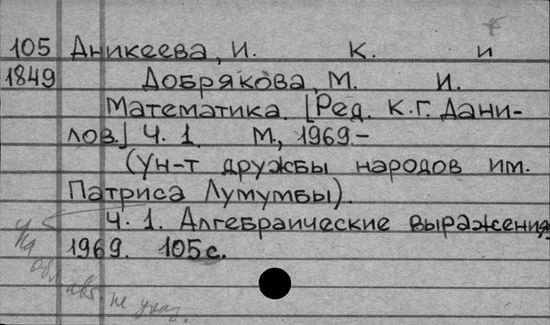 105 Аникеева, И. К. и
1849 Добрякова, М. И.
Математика. [Ред. К.Г. Дани-
лов.] Ч. 1. М., 1969.-
(Ун-т дружбы народов им.
Патриса Лумумбы).
Ч. 1. Алгебраические выражения
1969. 105 с.
На
обл. авт. не указ.